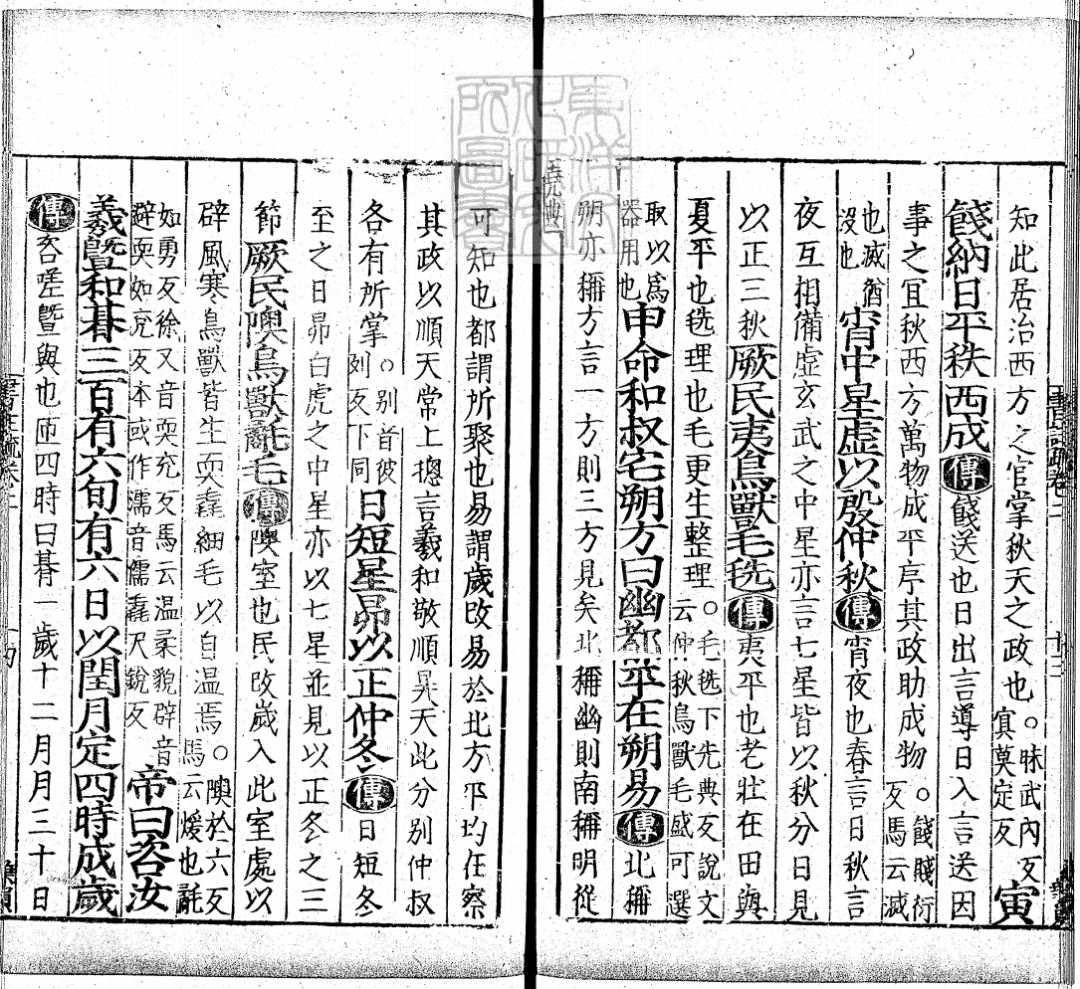 知此居治西方之官掌秋天之政也。昧武內反冥莫定反寅
餞納日平秩西成傳餞送也日出言導日入言送因
事之宜秋西方萬物成平序其政助成物。餞賤衍反馬云滅
也滅猶沒也宵中星虛以殷仲秋傳宵夜也春言日秋言
夜互相備虛玄武之中星亦言七星皆以秋分日見
以正三秋厥民夷鳥獸毛毨傳夷平也老壯在田與
夏平也毨理也毛更生整理。毛毨下先典反說文云仲秋鳥獸毛盛可選
取以爲器用也申命和叔宅朔方曰幽都平在朔易傳北稱
朔亦稱方言一方則三方見矣北稱幽則南稱明從
堯典
可知也都謂所聚也易謂歲改易於北方平均在察
其政以順天常上摠言羲和敬順昊天此分別仲叔
各有所掌。別音彼列反下同日短星昴以正仲冬傳日短冬
至之日昴白虎之中星亦以七星並見以正冬之三
節厥民隩鳥獸氄毛傳隩室也民改歲入此室處以
辟風寒鳥獸皆生耎毳細毛以自温焉。隩於六反馬云煖也氄
如勇反徐又音耎充反馬云温柔貌辟音避耎如兖反本或作濡音儒毳尺銳反帝曰咨汝
羲暨和朞三百有六旬有六日以閏月定四時成歲
傳咨嗟暨與也匝四時曰朞一歲十二月月三十日